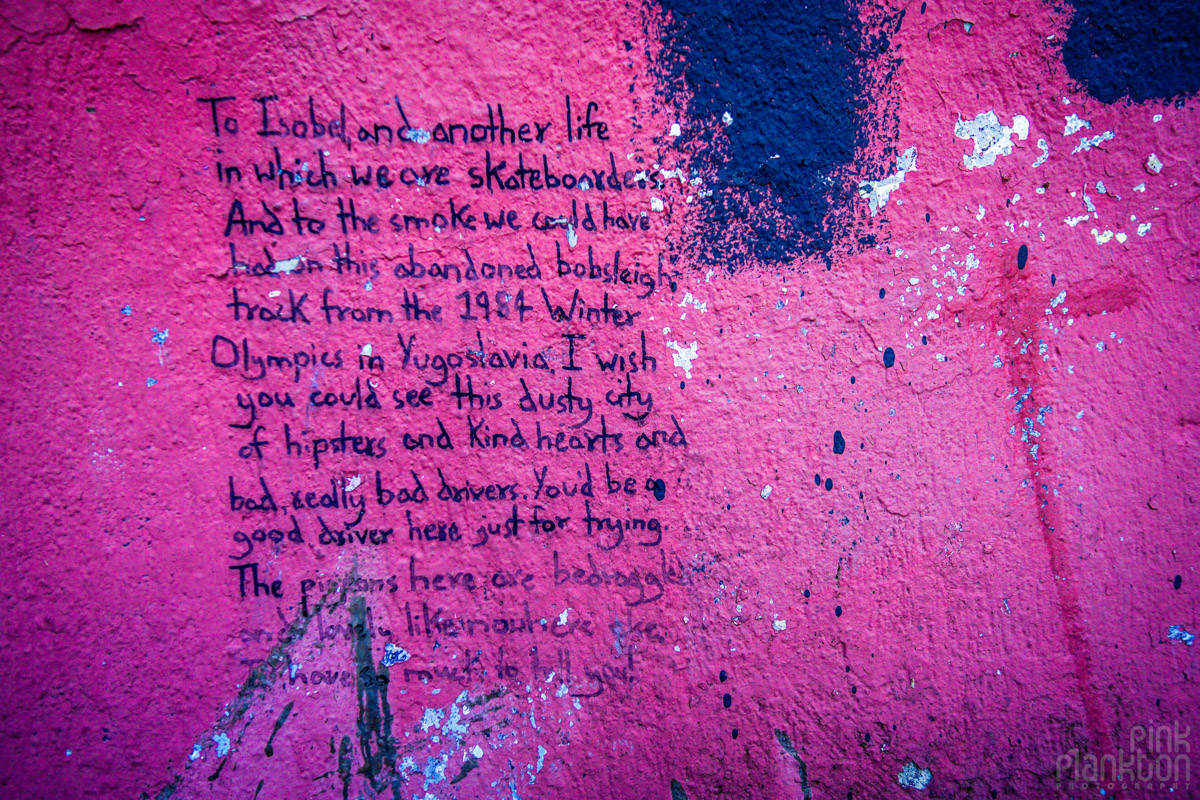 To Isobel, and another life
in which we are skateboarders.
And to the smoke we could have
had on this abandoned bobsleigh
track from the 1984 Winter
Olympics in Yugoslavia. I wish
you could see this dusty city
of hipsters and kind hearts and
bad, really bad drivers. You'd be a
good driver here just for trying.
The pigeons here are bedraggled
and lovely like nowhere else.
I have so much to tell you!
PINK
PLANKTON
PHOTOGRAPHY